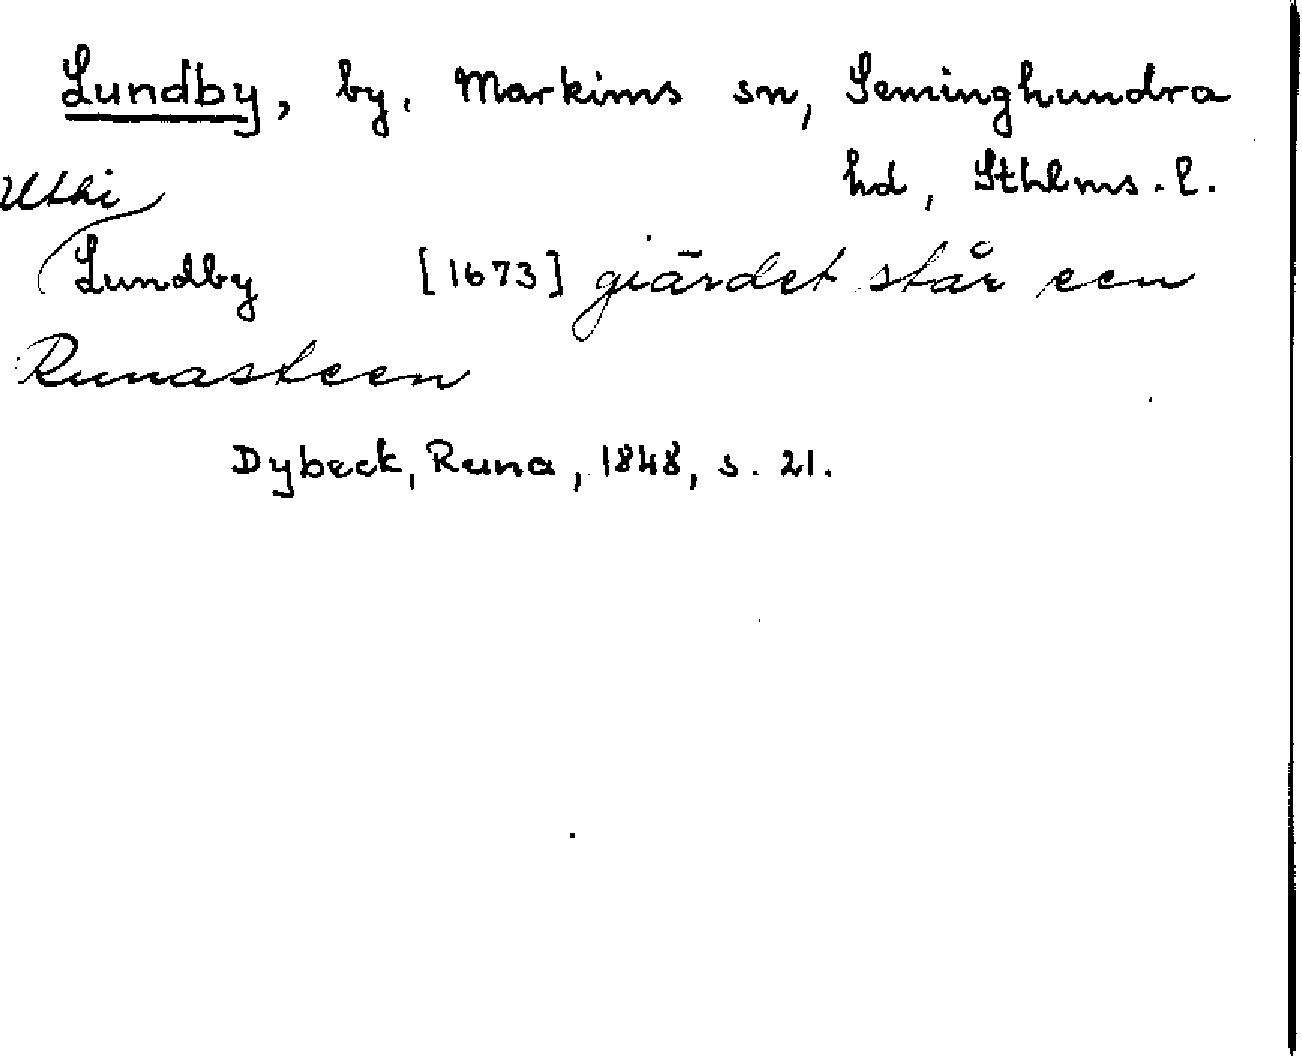 Lundby, by. Markims sn, Seminghundra
hd, Sthlms. l.
Uthi
Lundby [1673] giärdet står een
Runasteen
Dybeck, Runa, 1848, s. 21.